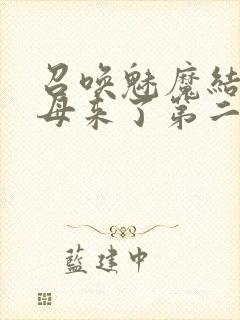 召唤魅魔結
母来了第二
藍建中